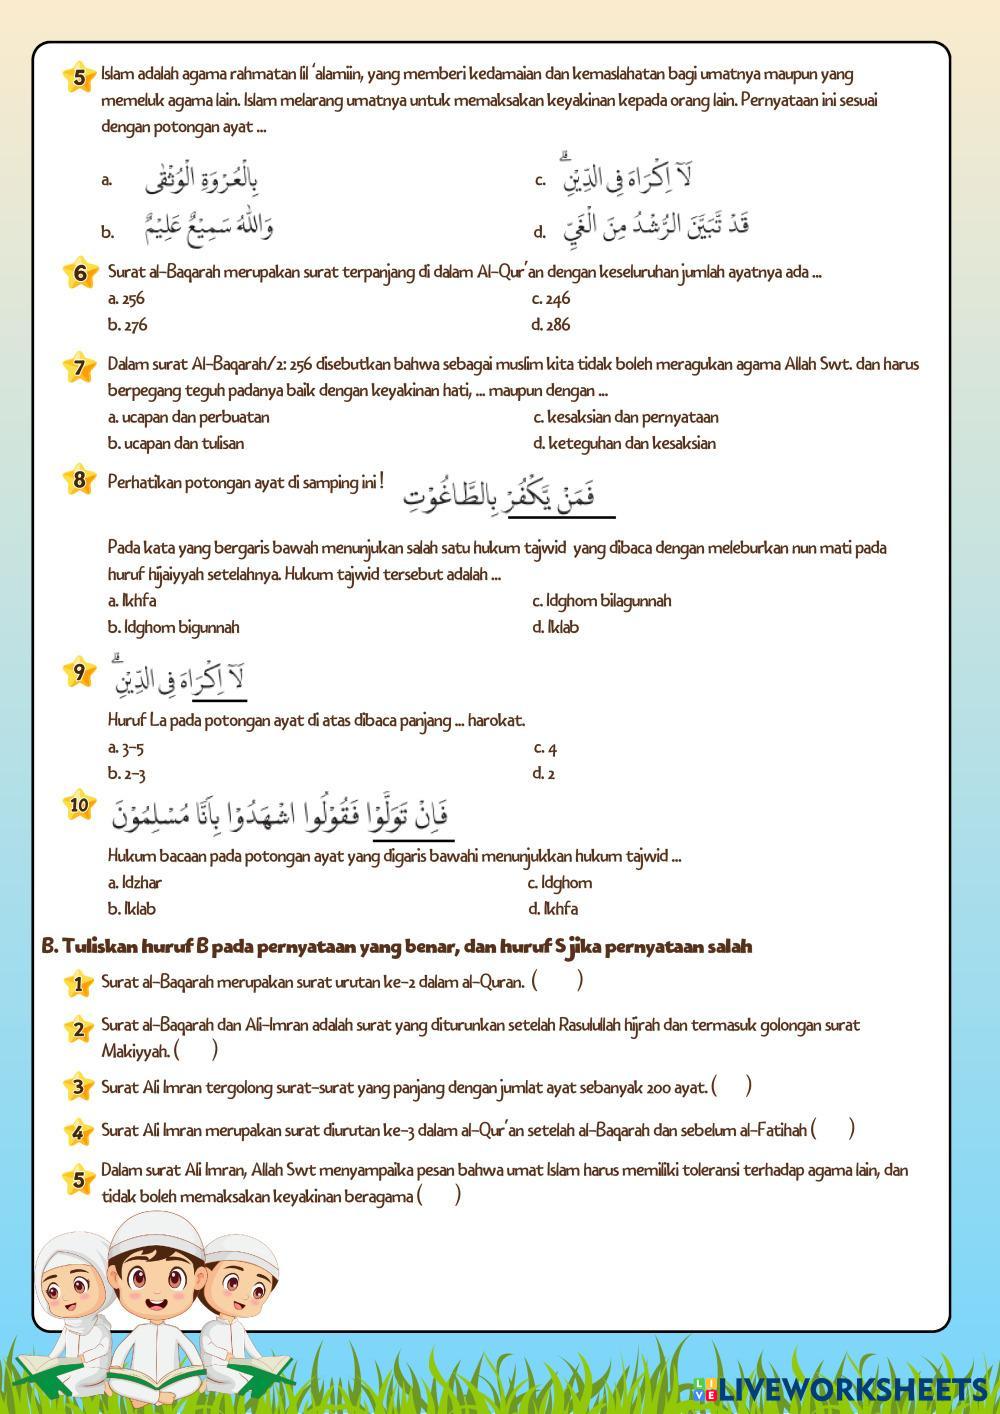 5 Islam adalah agama rahmatan lil 'alamiin, yang memberi kedamaian dan kemaslahatan bagi umatnya maupun yang
memeluk agama lain. Islam melarang umatnya untuk memaksakan keyakinan kepada orang lain. Pernyataan ini sesuai
dengan potongan ayat ...
a. بِالْعُرْوَةِ الْوُثْقٰى
c. لَآ اِكْرَاهَ فِى الدِّيْنِۗ
b. وَاللّٰهُ سَمِيْعٌ عَلِيْمٌ
d. قَدْ تَّبَيَّنَ الرُّشْدُ مِنَ الْغَيِّ
6 Surat al-Baqarah merupakan surat terpanjang di dalam Al-Qur'an dengan keseluruhan jumlah ayatnya ada ...
a. 256 c. 246
b. 276 d. 286
7 Dalam surat Al-Baqarah/2: 256 disebutkan bahwa sebagai muslim kita tidak boleh meragukan agama Allah Swt. dan harus
berpegang teguh padanya baik dengan keyakinan hati, ... maupun dengan ...
a. ucapan dan perbuatan c. kesaksian dan pernyataan
b. ucapan dan tulisan d. keteguhan dan kesaksian
8 Perhatikan potongan ayat di samping ini ! فَمَنْ يَّكْفُرْ بِالطَّاغُوْتِ
Pada kata yang bergaris bawah menunjukan salah satu hukum tajwid yang dibaca dengan meleburkan nun mati pada
huruf hijaiyyah setelahnya. Hukum tajwid tersebut adalah ...
a. Ikhfa c. Idghom bilagunnah
b. Idghom bigunnah d. Iklab
9 لَآ اِكْرَاهَ فِى الدِّيْنِۗ
Huruf La pada potongan ayat di atas dibaca panjang ... harokat.
a. 3-5 c. 4
b. 2-3 d. 2
10 فَاِنْ تَوَلَّوْا فَقُوْلُوا اشْهَدُوْا بِاَنَّا مُسْلِمُوْنَ
Hukum bacaan pada potongan ayat yang digaris bawahi menunjukkan hukum tajwid ...
a. Idzhar c. Idghom
b. Iklab d. Ikhfa
B. Tuliskan huruf B pada pernyataan yang benar, dan huruf S jika pernyataan salah
1 Surat al-Baqarah merupakan surat urutan ke-2 dalam al-Quran. ( )
2 Surat al-Baqarah dan Ali-Imran adalah surat yang diturunkan setelah Rasulullah hijrah dan termasuk golongan surat
Makiyyah. ( )
3 Surat Ali Imran tergolong surat-surat yang panjang dengan jumlat ayat sebanyak 200 ayat. ( )
4 Surat Ali Imran merupakan surat diurutan ke-3 dalam al-Qur'an setelah al-Baqarah dan sebelum al-Fatihah ( )
5 Dalam surat Ali Imran, Allah Swt menyampaika pesan bahwa umat Islam harus memiliki toleransi terhadap agama lain, dan
tidak boleh memaksakan keyakinan beragama ( )
LIVE LIVEWORKSHEETS